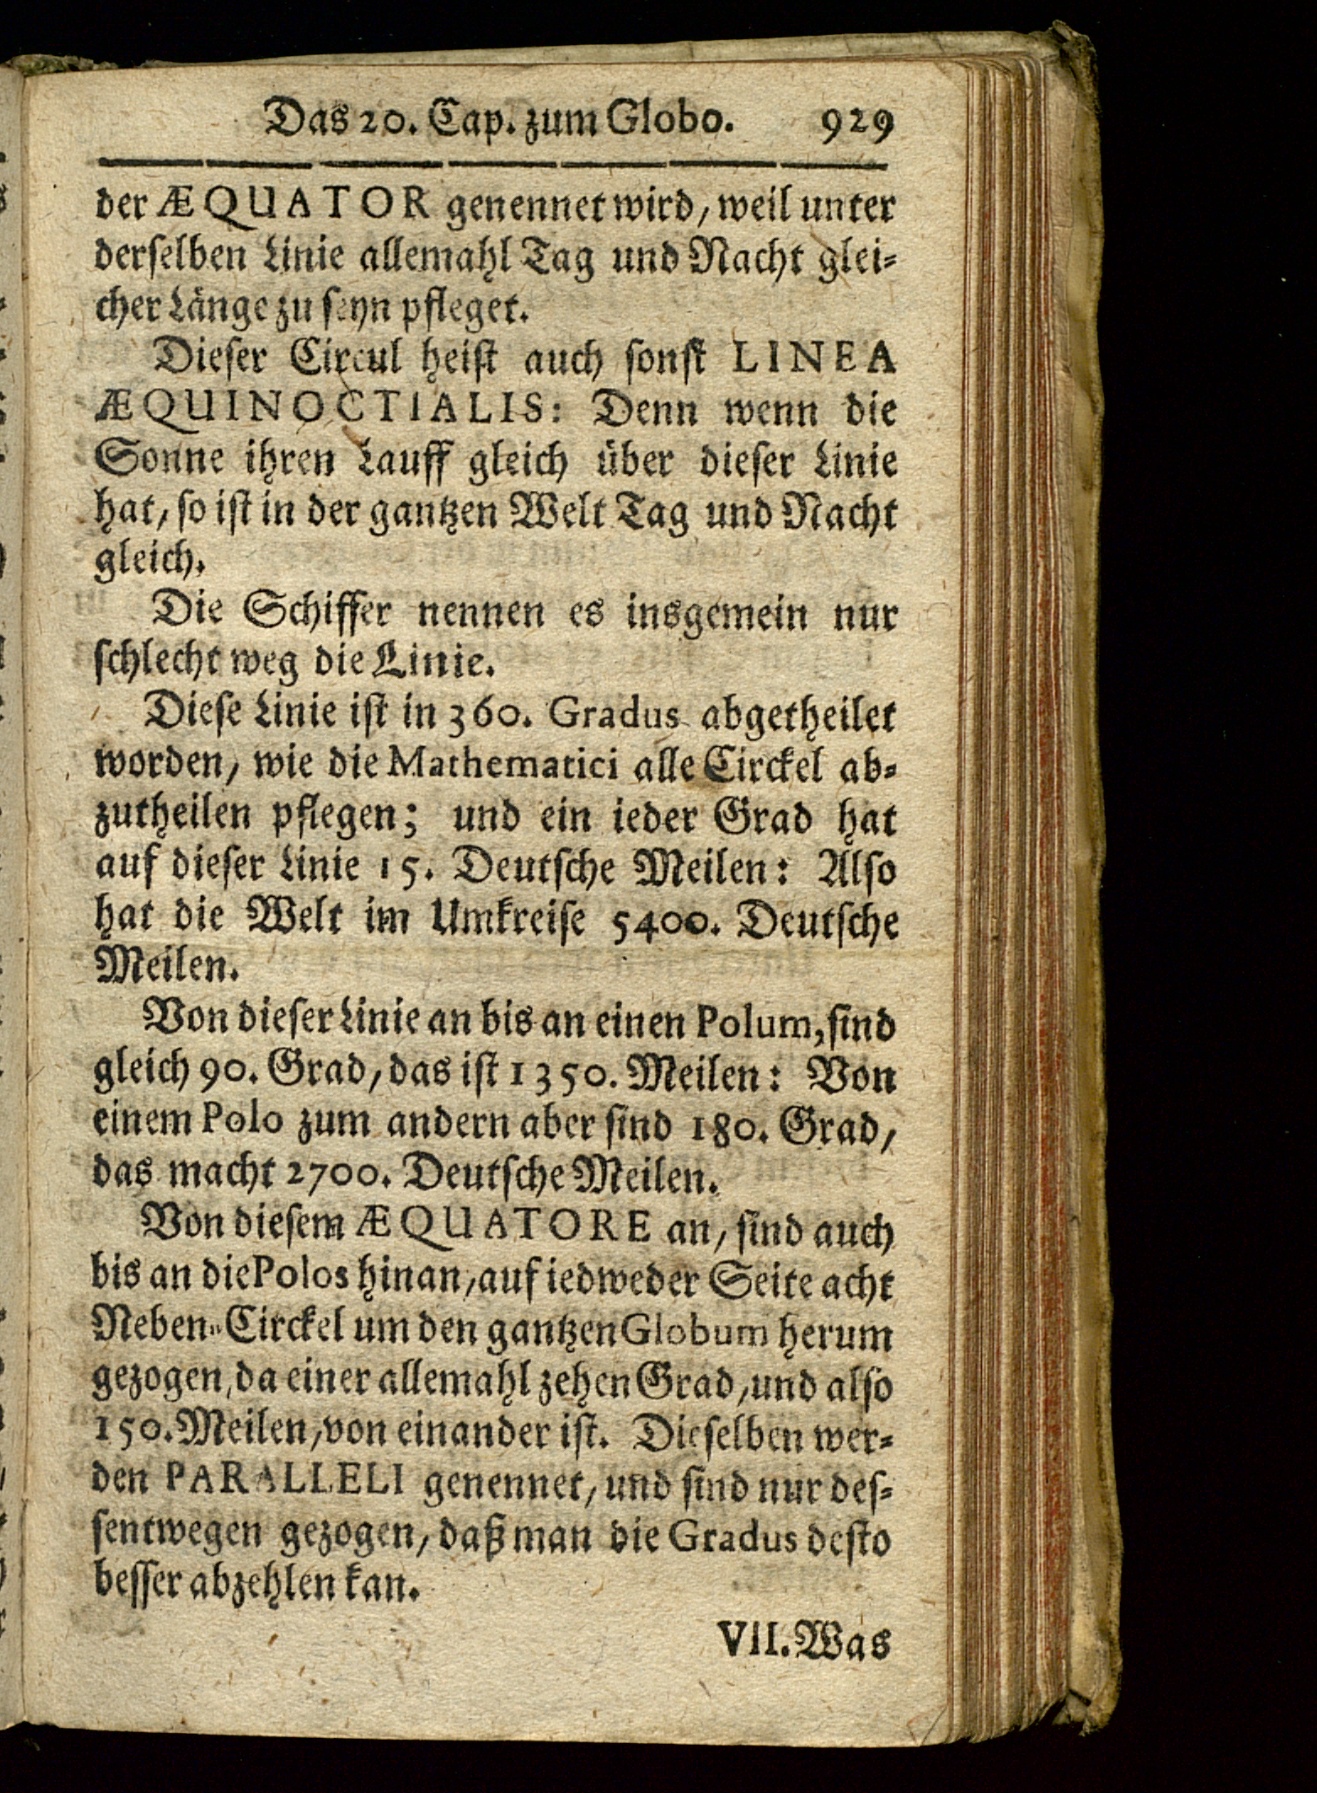 Das 20. Cap. zum Globo. 929
der ÆQUATOR genennet wird, weil unter
derselben Linie allemahl Tag und Nacht glei-
cher Länge zu seyn pfleget.
Dieser Circul heist auch sonst LINEA
ÆQUINOCTIALIS: Denn wenn die
Sonne ihren Lauff gleich über dieser Linie
hat, so ist in der gantzen Welt Tag und Nacht
gleich.
Die Schiffer nennen es insgemein nur
schlecht weg die Linie.
Diese Linie ist in 360. Gradus abgetheilet
worden, wie die Mathematici alle Circkel ab-
zutheilen pflegen; und ein ieder Grad hat
auf dieser Linie 15. Deutsche Meilen: Also
hat die Welt im Umkreise 5400. Deutsche
Meilen.
Von dieser Linie an bis an einen Polum, sind
gleich 90. Grad, das ist 1350. Meilen: Von
einem Polo zum andern aber sind 180. Grad,
das macht 2700. Deutsche Meilen.
Von diesem ÆQUATORE an, sind auch
bis an die Polos hinan, auf iedweder Seite acht
Neben-Circkel um den gantzen Globum herum
gezogen, da einer allemahl zehen Grad, und also
150. Meilen, von einander ist. Dieselben wer-
den PARALLELI genennet, und sind nur des-
sentwegen gezogen, daß man die Gradus desto
besser abzehlen kan.
VII. Was